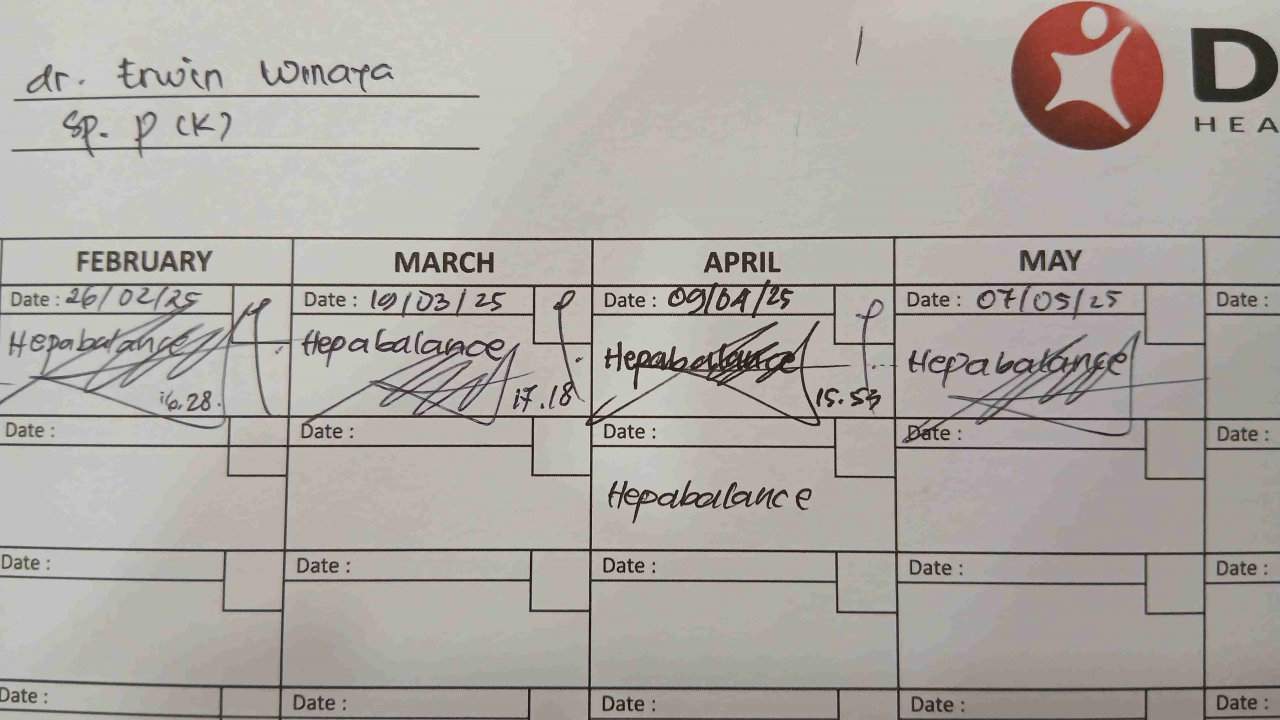 dr. Erwin Winaya
Sp. P (K)
D
HEA
FEBRUARY MARCH APRIL MAY
Date : 26/02/25 Date : 19/03/25 Date : 09/04/25 Date : 07/05/25 Date :
Hepabalance Hepabalance Hepabalance Hepabalance
16.28 17.18 15.53
Date : Date : Date : Date : Date :
Hepabalance
Date : Date : Date : Date : Date :
Date : Date : Date : Date : Date :